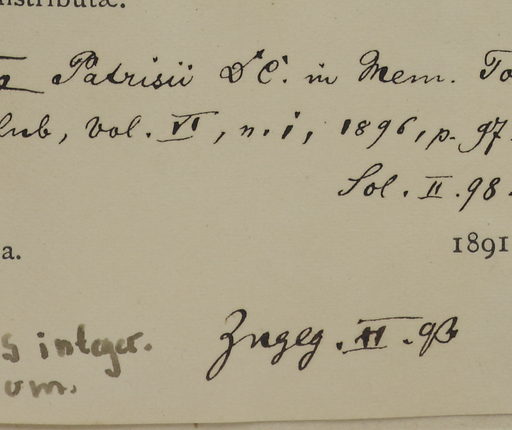 istributæ.
Patrisii D'C. in Mem. To
lub, vol. VI, n. i, 1896, p. 97
Sol. II. 98.
a.
1891
s integer.
um.
Zngeg. II. 93